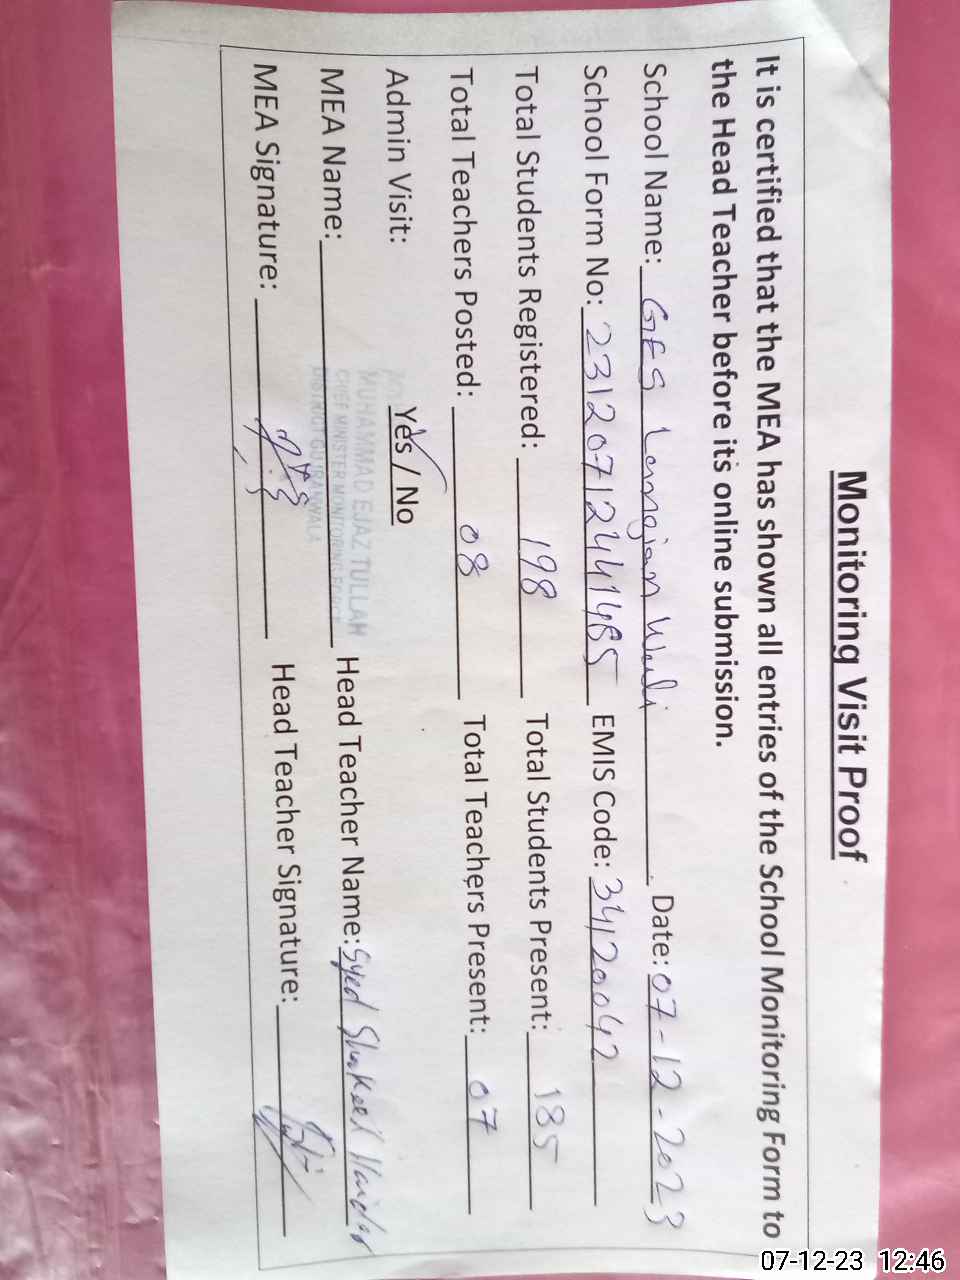 Monitoring Visit Proof
It is certified that the MEA has shown all entries of the School Monitoring Form to
the Head Teacher before its online submission.
School Name: GES Longian Wali Date: 07-12-2023
School Form No: 23120712441485 EMIS Code: 34120042
Total Students Registered: 198 Total Students Present: 185
Total Teachers Posted: 08 Total Teachers Present: 07
Admin Visit: Yes / No
MUHAMMAD EJAZ TULLAH
CHIEF MINISTER MONITORING FORCE
DISTRICT GUJRANWALA
MEA Name: Head Teacher Name: Syed Shakeel Haider
MEA Signature: Head Teacher Signature:
07-12-23 12:46